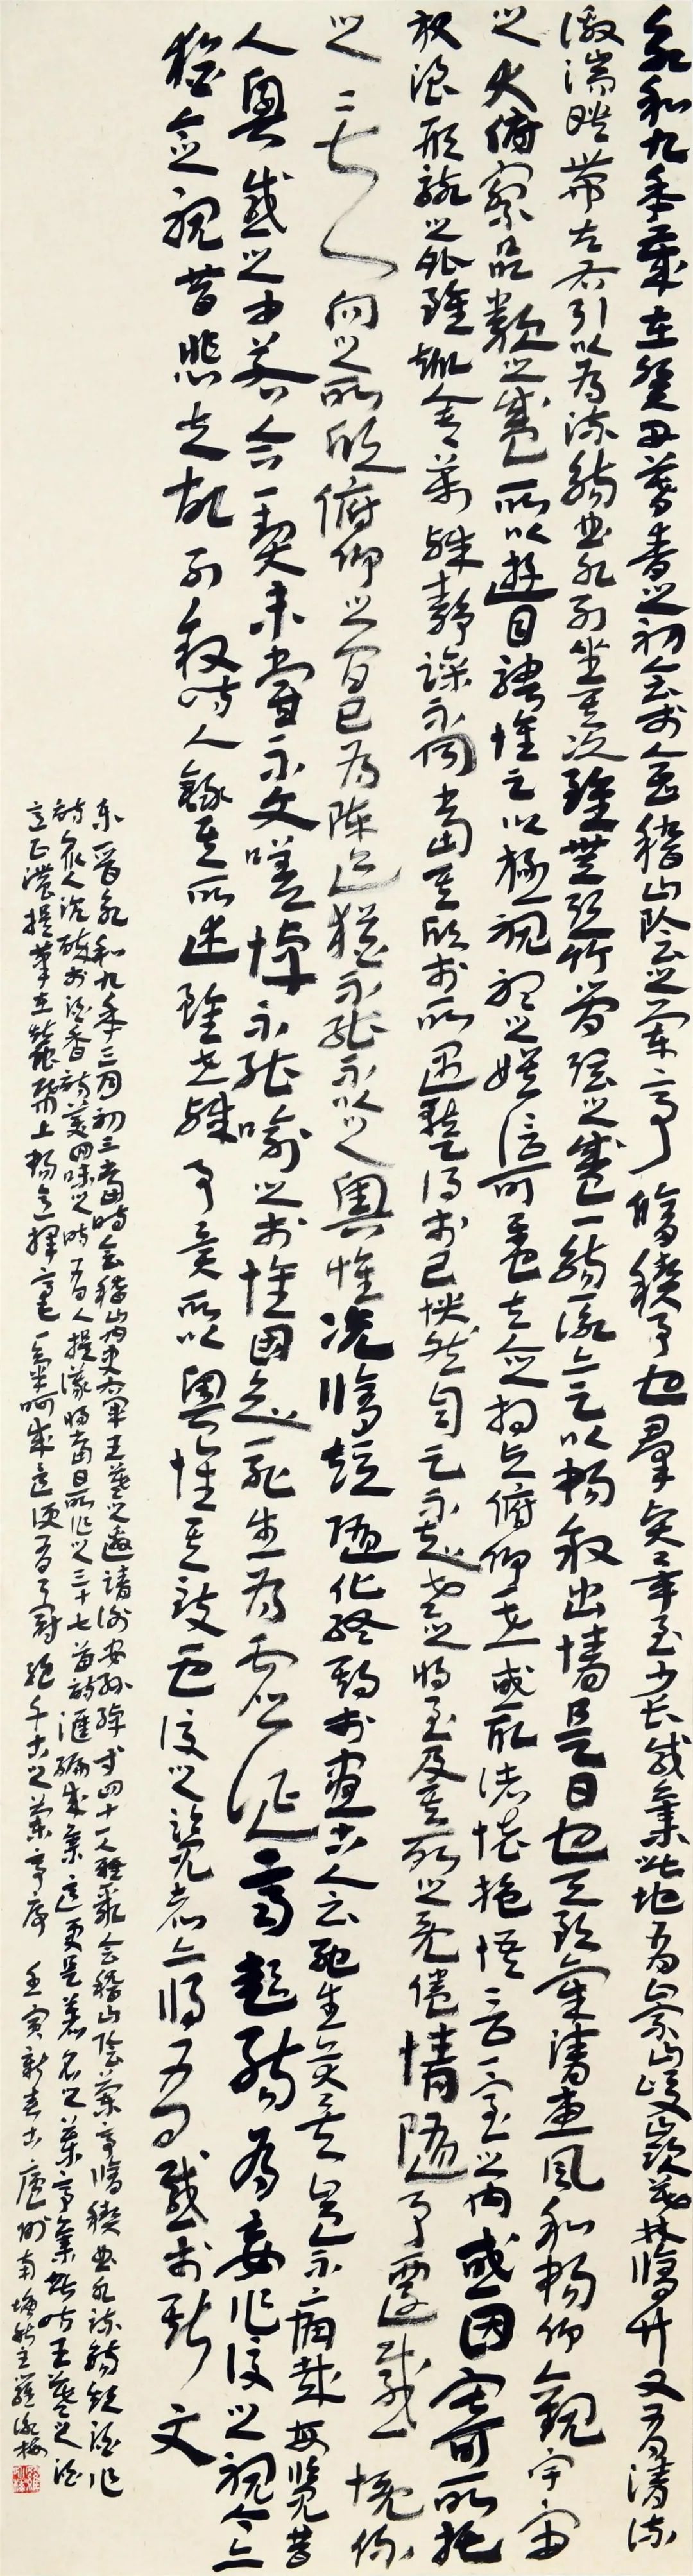 永和九年歲在癸丑暮春之初會於會稽山陰之蘭亭脩禊事也羣賢畢至少長咸集此地有崇山峻嶺茂林脩竹又有清流
激湍暎帶左右引以為流觴曲水列坐其次雖無絲竹管弦之盛一觴一詠亦足以暢敘幽情是日也天朗氣清惠風和暢仰觀宇宙
之大俯察品類之盛所以遊目騁懷足以極視聽之娛信可樂也夫人之相與俯仰一世或取諸懷抱悟言一室之內或因寄所托
放浪形骸之外雖趣舍萬殊靜躁不同當其欣於所遇暫得於己快然自足不知老之將至及其所之既倦情隨事遷感慨係
之矣向之所欣俯仰之間已為陳迹猶不能不以之興懷況脩短隨化終期於盡古人云死生亦大矣豈不痛哉每覽昔
人興感之由若合一契未嘗不臨文嗟悼不能喻之於懷固知一死生為虛誕齊彭殤為妄作後之視今亦
猶今之視昔悲夫故列敘時人錄其所述雖世殊事異所以興懷其致一也後之覽者亦將有感於斯文
東晉永和九年三月初三當時會稽內史右軍王羲之邀請謝安孫綽等四十一人雅聚會稽山陰蘭亭脩禊曲水流觴飲酒作
詩眾人沉醉於酒香詩美回味之時有人提議將當日所作之三十七首詩滙編成集這更是著名之蘭亭集此時王羲之酒
意正濃提筆在蠶紙上暢意揮毫一氣呵成這便有了冠絕千古之蘭亭序 壬寅新春古廬州南塘主羅永梅